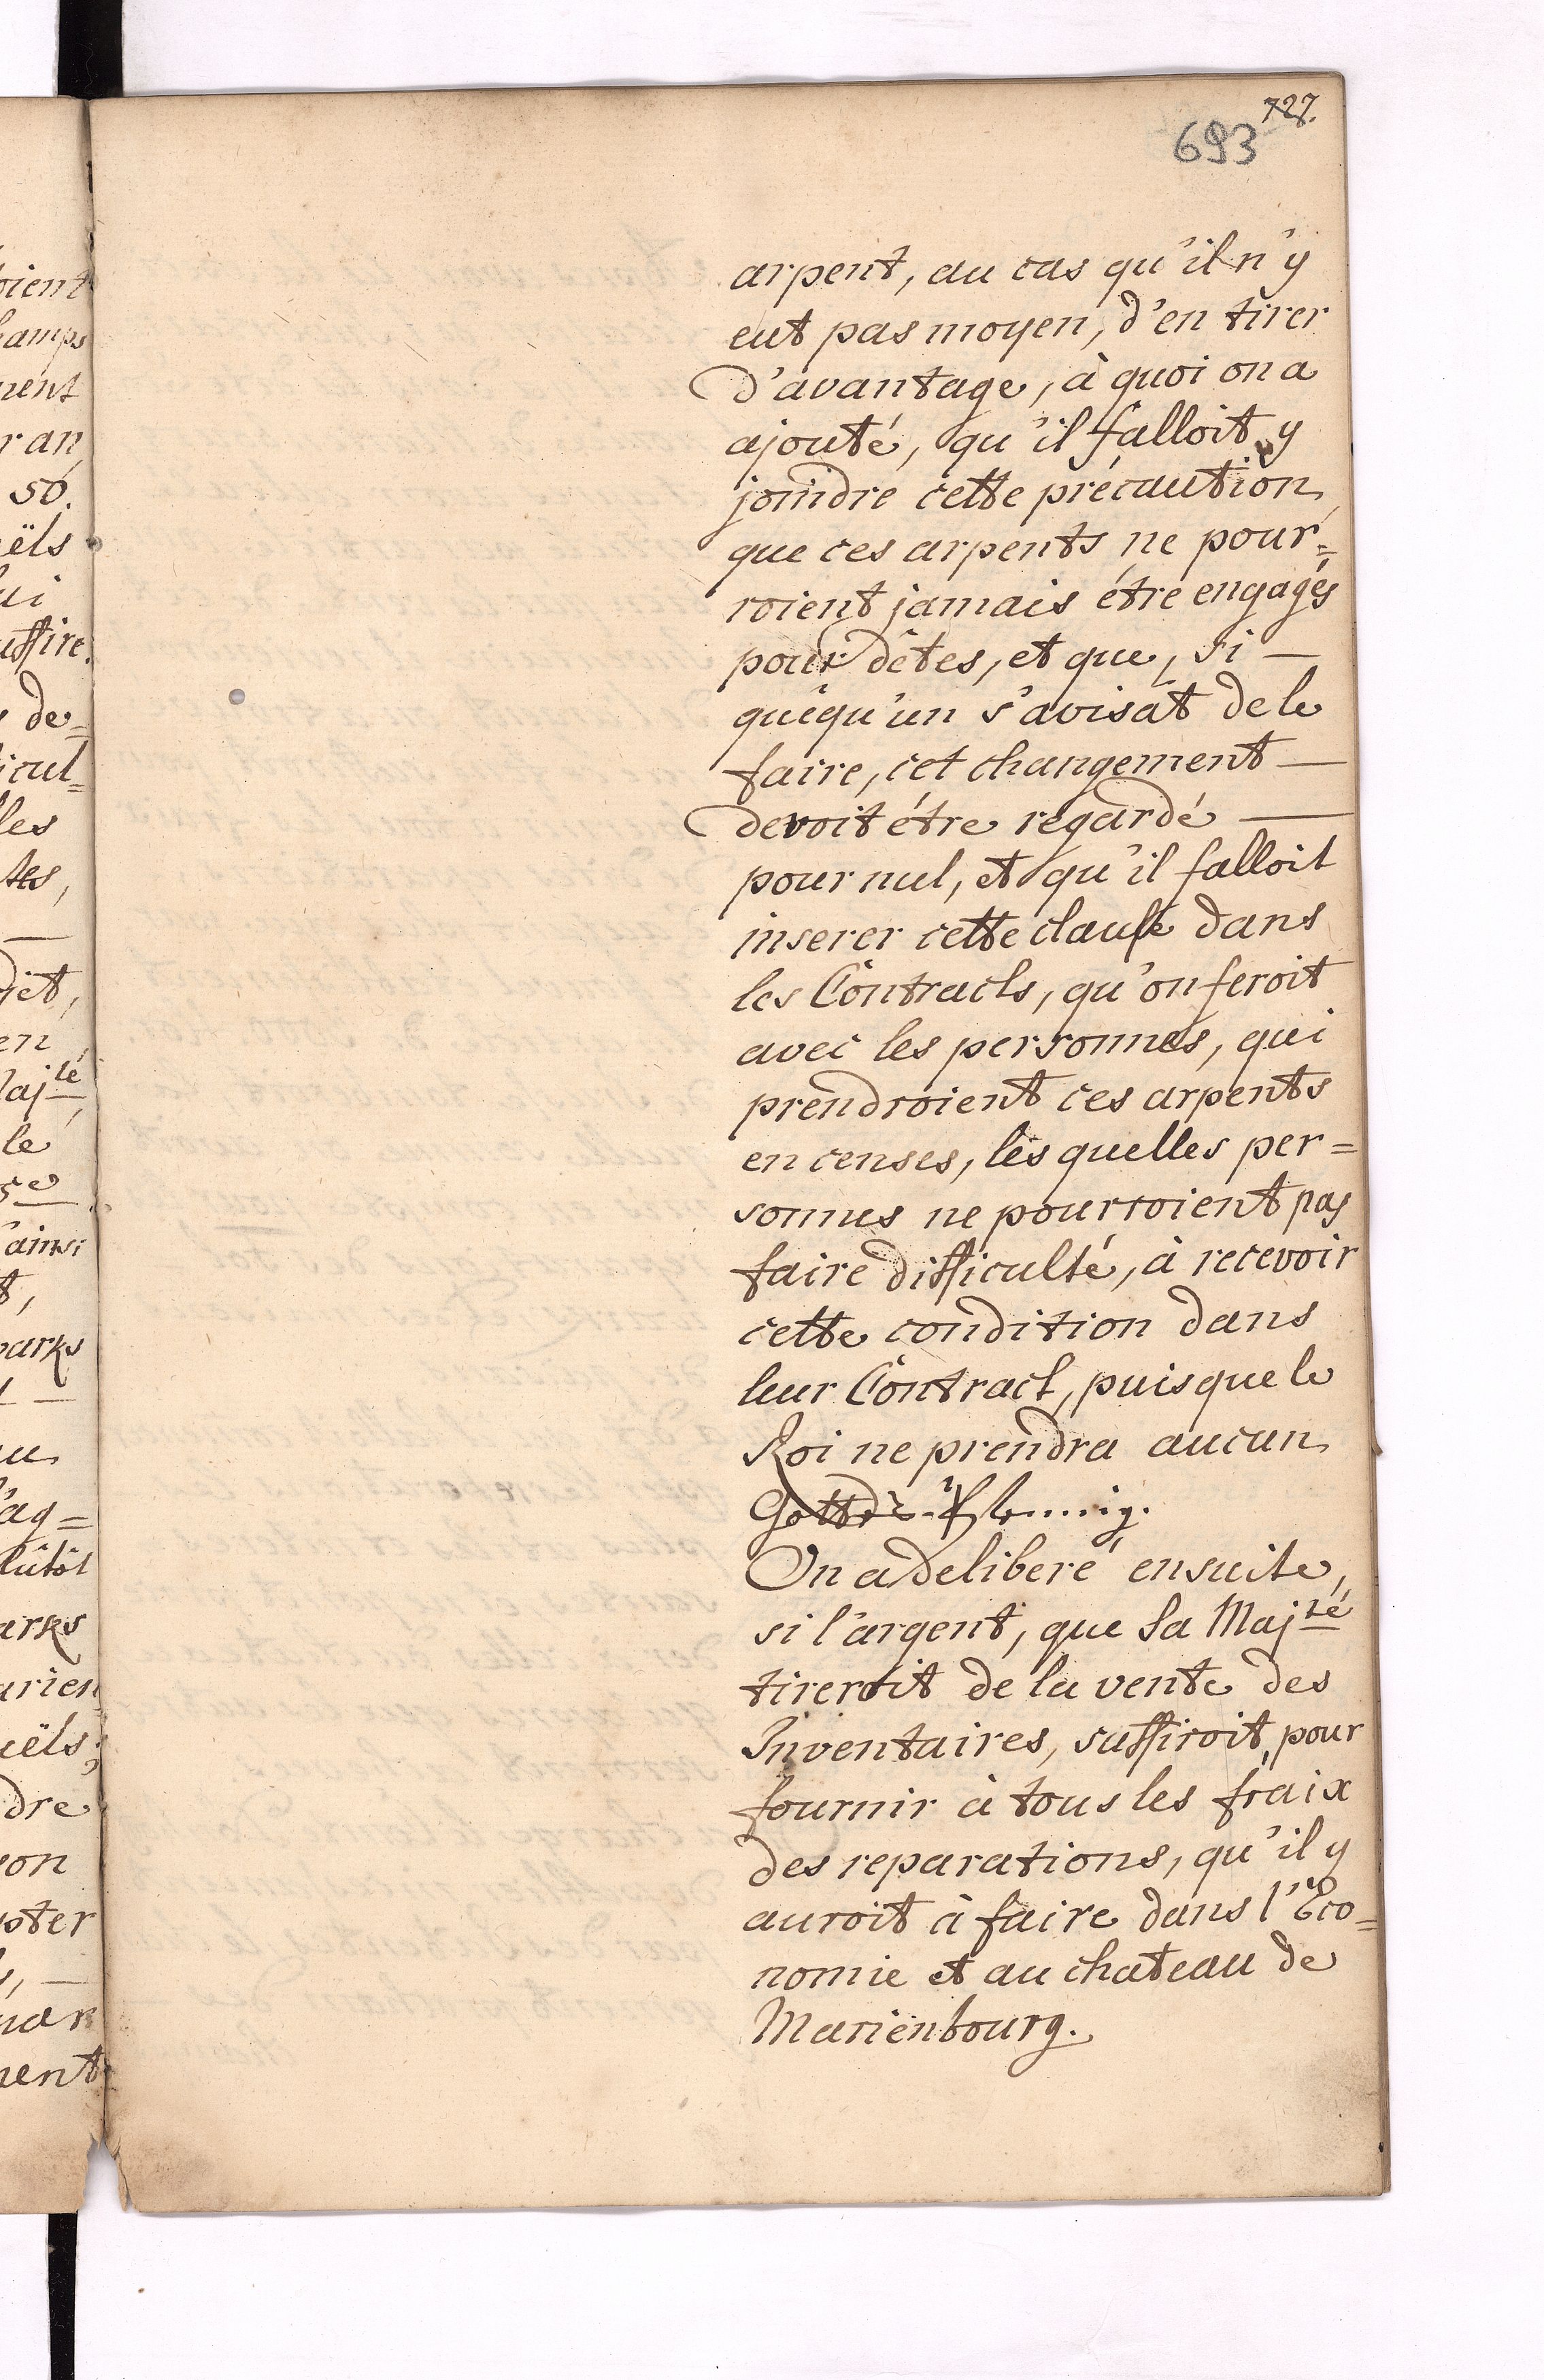 727.
693
arpent, au cas qu'il n'y
eut pas moyen, d'en tirer
d'avantage, à quoi on a
ajouté, qu'il falloit y
joindre cette précaution,
que ces arpents ne pour=
roient jamais étre engagés
pour dêtes, et que, si —
quéqu'un s'avisât de le
faire, cet changement —
devoit étre regardé —
pour nul, et qu'il falloit
inserer cette clause dans
les Contracts, qu'on feroit
avec les personnes, qui
prendroient ces arpents
en censes, les quelles per=
sonnes ne pourroient pas
faire difficulté, à recevoir
cette condition dans
leur Contract, puisque le
Roi ne prendra aucun
Gottes-Pfennig.
On a deliberé ensuite,
si l'argent, que Sa Majté
tireroit de la vente des
Inventaires, suffiroit, pour
fournir à tous les fraix
des reparations, qu'il y
auroit à faire dans l'Eco=
nomie et au chateau de
Marienbourg.
oient
hamps
ment
r an
50.
ëls
ui
uffire.
de=
icul=
les
tes,
iet,
en
Majté,
le
5e
'ainsi
t,
parks
u
'ag=
lûtôt
arks
arien
uëls;
dre
on
oter
mar
ment